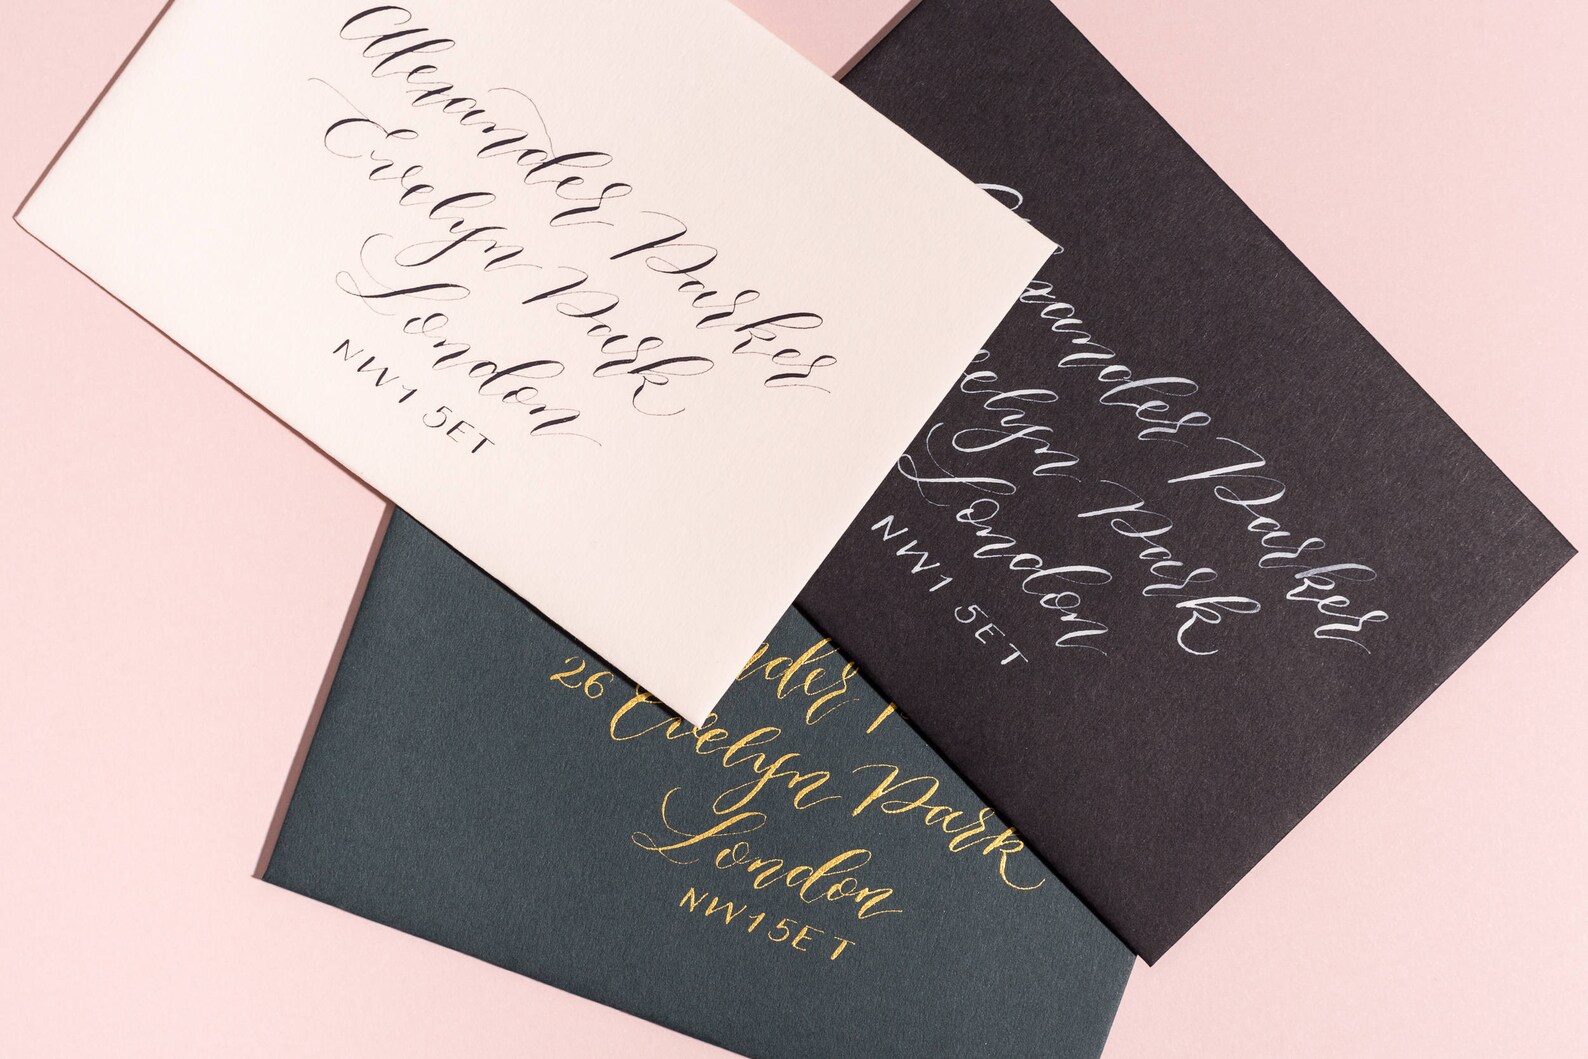 Alexander Parker
Evelyn Park
London
NW1 5ET
xander Parker
elyn Park
London
NW1 5ET
nder P
26 Evelyn Park
London
NW1 5ET